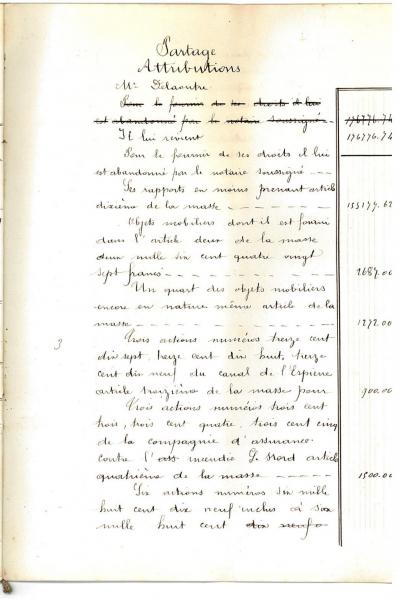 Partage
Attributions
Mr Delaoutre
Pour le fournir de ses droits il lui
est abandonné par le notaire soussigné 176776.74
Il lui revient 176776.74
Pour le fournir de ses droits il lui
est abandonné par le notaire soussigné
Ses rapports en moins prenant article
dixième de la masse 155177.62
Objets mobiliers dont il est fourni
dans l'article deux de la masse
deux mille six cent quatre vingt
sept francs 2687.00
Un quart des objets mobiliers
encore en nature même article de la
masse 1272.00
3 Trois actions numéros treize cent
dix sept, treize cent dix huit, treize
cent dix neuf du canal de l'Espierre
article treizième de la masse pour 900.00
Trois actions numéros trois cent
trois, trois cent quatre, trois cent cinq
de la compagnie d'assurance
contre l'ass incendie Nord article
quatrième de la masse 1500.00
Six actions numéros six mille
huit cent dix neuf inclus à six
mille huit cent dix neuf